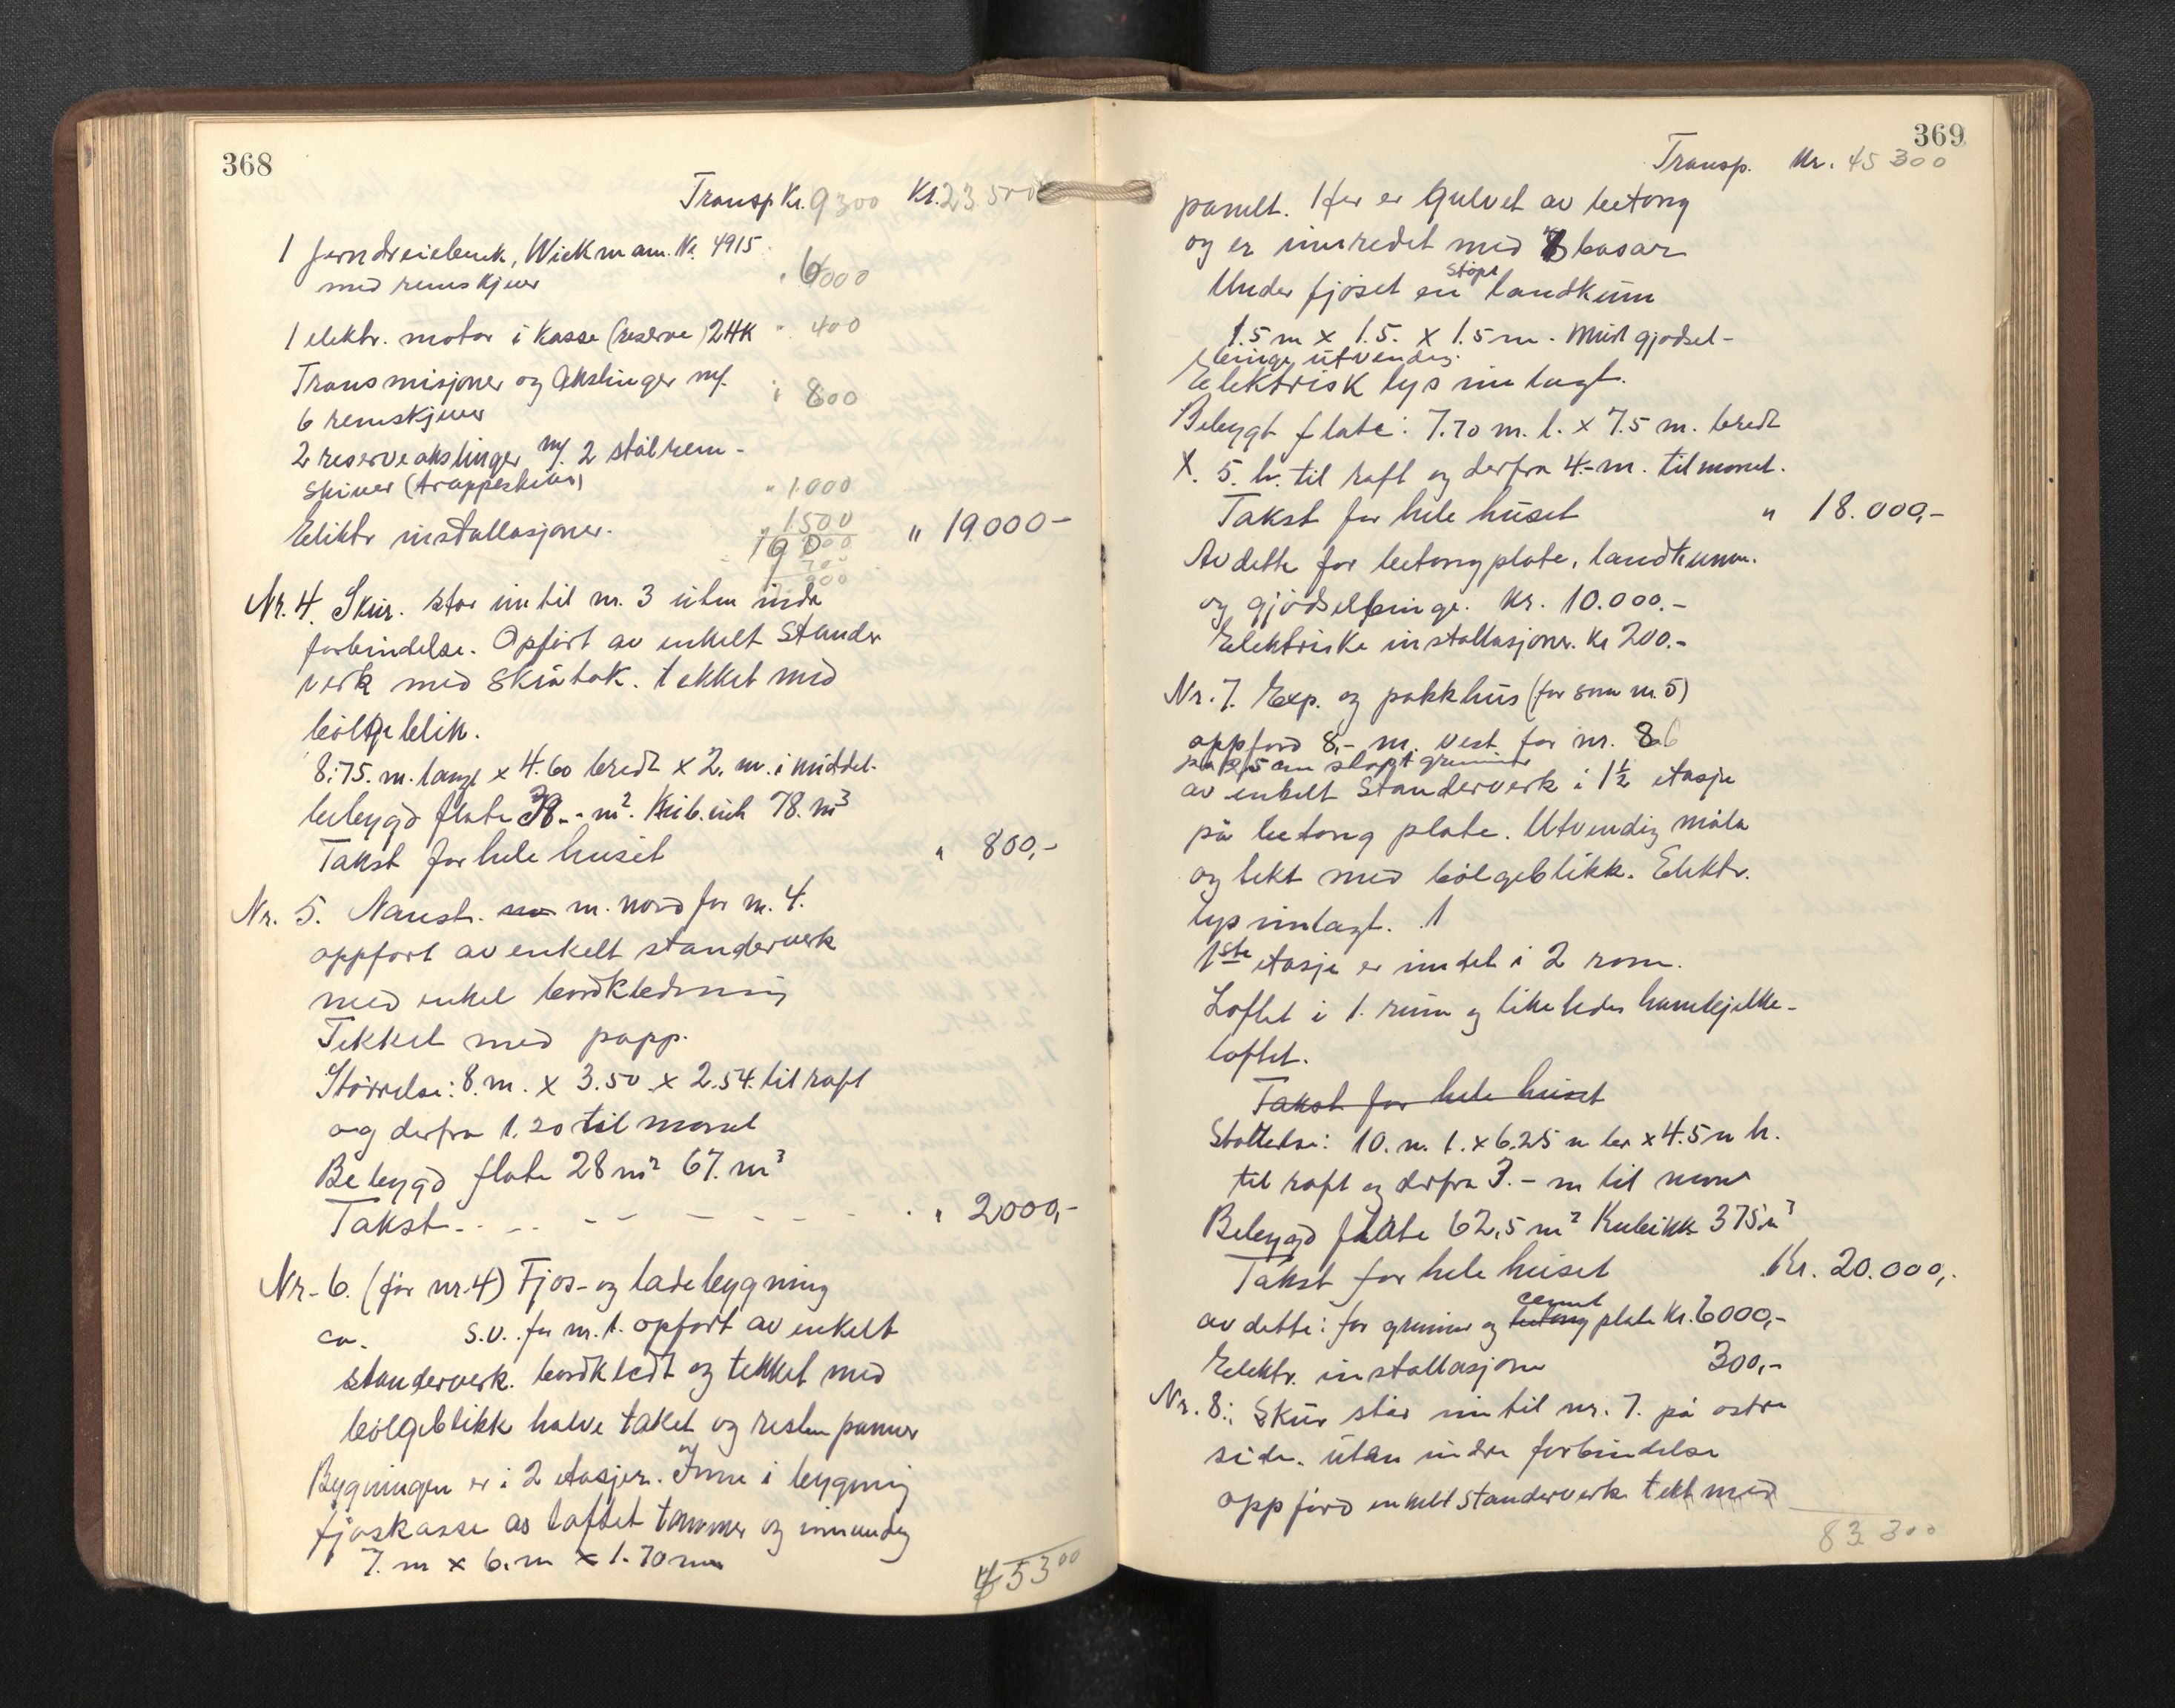 368
Transp Kr. 9300 Kr. 23 500
1 jerndreiebenk, Wickmann. Nr. 4915
med remskjver " 6000
1 elektr. motor i kasse (reserve) 2HK " 400
Transmisjoner og Akslinger m/.
6 remskjiver " 800
2 reserveakslinger m/. 2 stålrem-
skiver (trappeskive) " 1000
Elektr installasjoner. " 1500 " 19000-
19000
Nr. 4. Skur. står inntil nr. 3 uten indre
forbindelse. Opført av enkelt stander
verk med skråtak. tekket med
bølgeblik.
8.75. m. langt x 4.60 bredt x 2. m. i middel.
bebygd flate 39.- m². Kubikk 78. m³
Takst for hele huset " 800,-
Nr. 5. Naust. m. nord for nr. 4.
oppført av enkelt standerverk
med enkel bordkledning
Tekket med papp.
Størrelse: 8. m. x 3.50 x 2.54. til raft
og derfra 1.20 til mønet
Bebygd flate 28 m² 67. m³
Takst. - - - - - - - " 2000,-
Nr. 6. (før nr. 4) Fjøs- og ladebygning
ca. s.v. for nr. 1. opført av enkelt
standerverk. bordkledt og tekket med
bølgeblikk halve taket og resten panner
Bygningen er i 2 etasjer. Inne i bygning
fjøskasse av laftet tømmer og innvendig
7. m x 6. m x 1.70 m
45300
369
Transp. Kr. 45 300
panelt. Her er gulvet av betong
og er innredet med 7 båsar
Under fjøset en støpt landkum
1.5 m x 1.5. x 1.5 m. Mur gjødsel-
binge utvendig.
Elektrisk lys innlagt.
Bebygt flate: 7.70 m. l. x 7.5 m. bredt
x. 5. h. til raft og derfra 4.- m. til mønet.
Takst for hele huset " 18.000,-
Av dette for betongplate, landkum.
og gjødselbinge. Kr. 10.000.-
Elektriske installasjoner. Kr 200.-
Nr. 7. Exp. og pakkhus (før som nr. 5)
oppförd 8,- m. vest for nr. 6
på 25 cm støpt grunnmur
av enkelt standerverk i 1½ etasje
på betong plate. Utvendig måla
og tekt med bølgeblikk. Elektr.
lys innlagt. 1
1ste etasje er inndelt i 2 rom.
Loftet i 1. rum og likeledes hanebjelke-
loftet.
Takst for hele huset
Størrelse: 10. m. l. x 6.25 m br x 4.5 m h.
til raft og derfra 3.- m til møne
Bebygd flate 62,5 m² Kubikk 375 m³
Takst for hele huset Kr. 20.000,-
av dette: for grunnmur og betong cement plate Kr. 6000,-
Elektr. installasjoner 300,-
Nr. 8: Skur står inntil nr. 7. på østre
side. utan indre forbindelse
oppförd enkelt standerverk tekt med
83 300